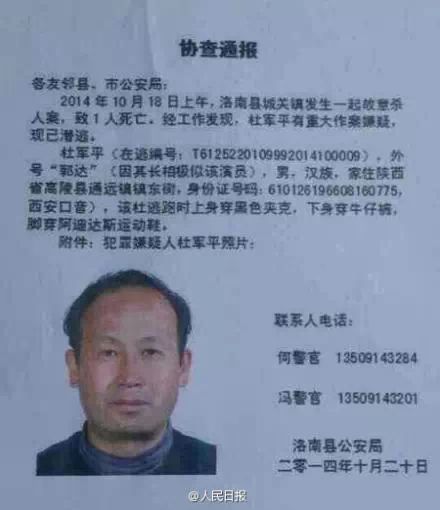 协查通报
各友邻县、市公安局：
2014年10月18日上午，洛南县城关镇发生一起故意杀
人案，致1人死亡。经工作发现，杜军平有重大作案嫌疑，
现已潜逃。
杜军平（在逃编号：T6125220109992014100009），外
号“郭达”（因其长相极似该演员），男，汉族，家住陕西
省高陵县通远镇镇东街，身份证号码：610126196608160775，
西安口音），该杜逃跑时上身穿黑色夹克，下身穿牛仔裤，
脚穿阿迪达斯运动鞋。
附件：犯罪嫌疑人杜军平照片：
联系人电话：
何警官 13509143284
冯警官 13509143201
洛南县公安局
二〇一四年十月二十日
@人民日报